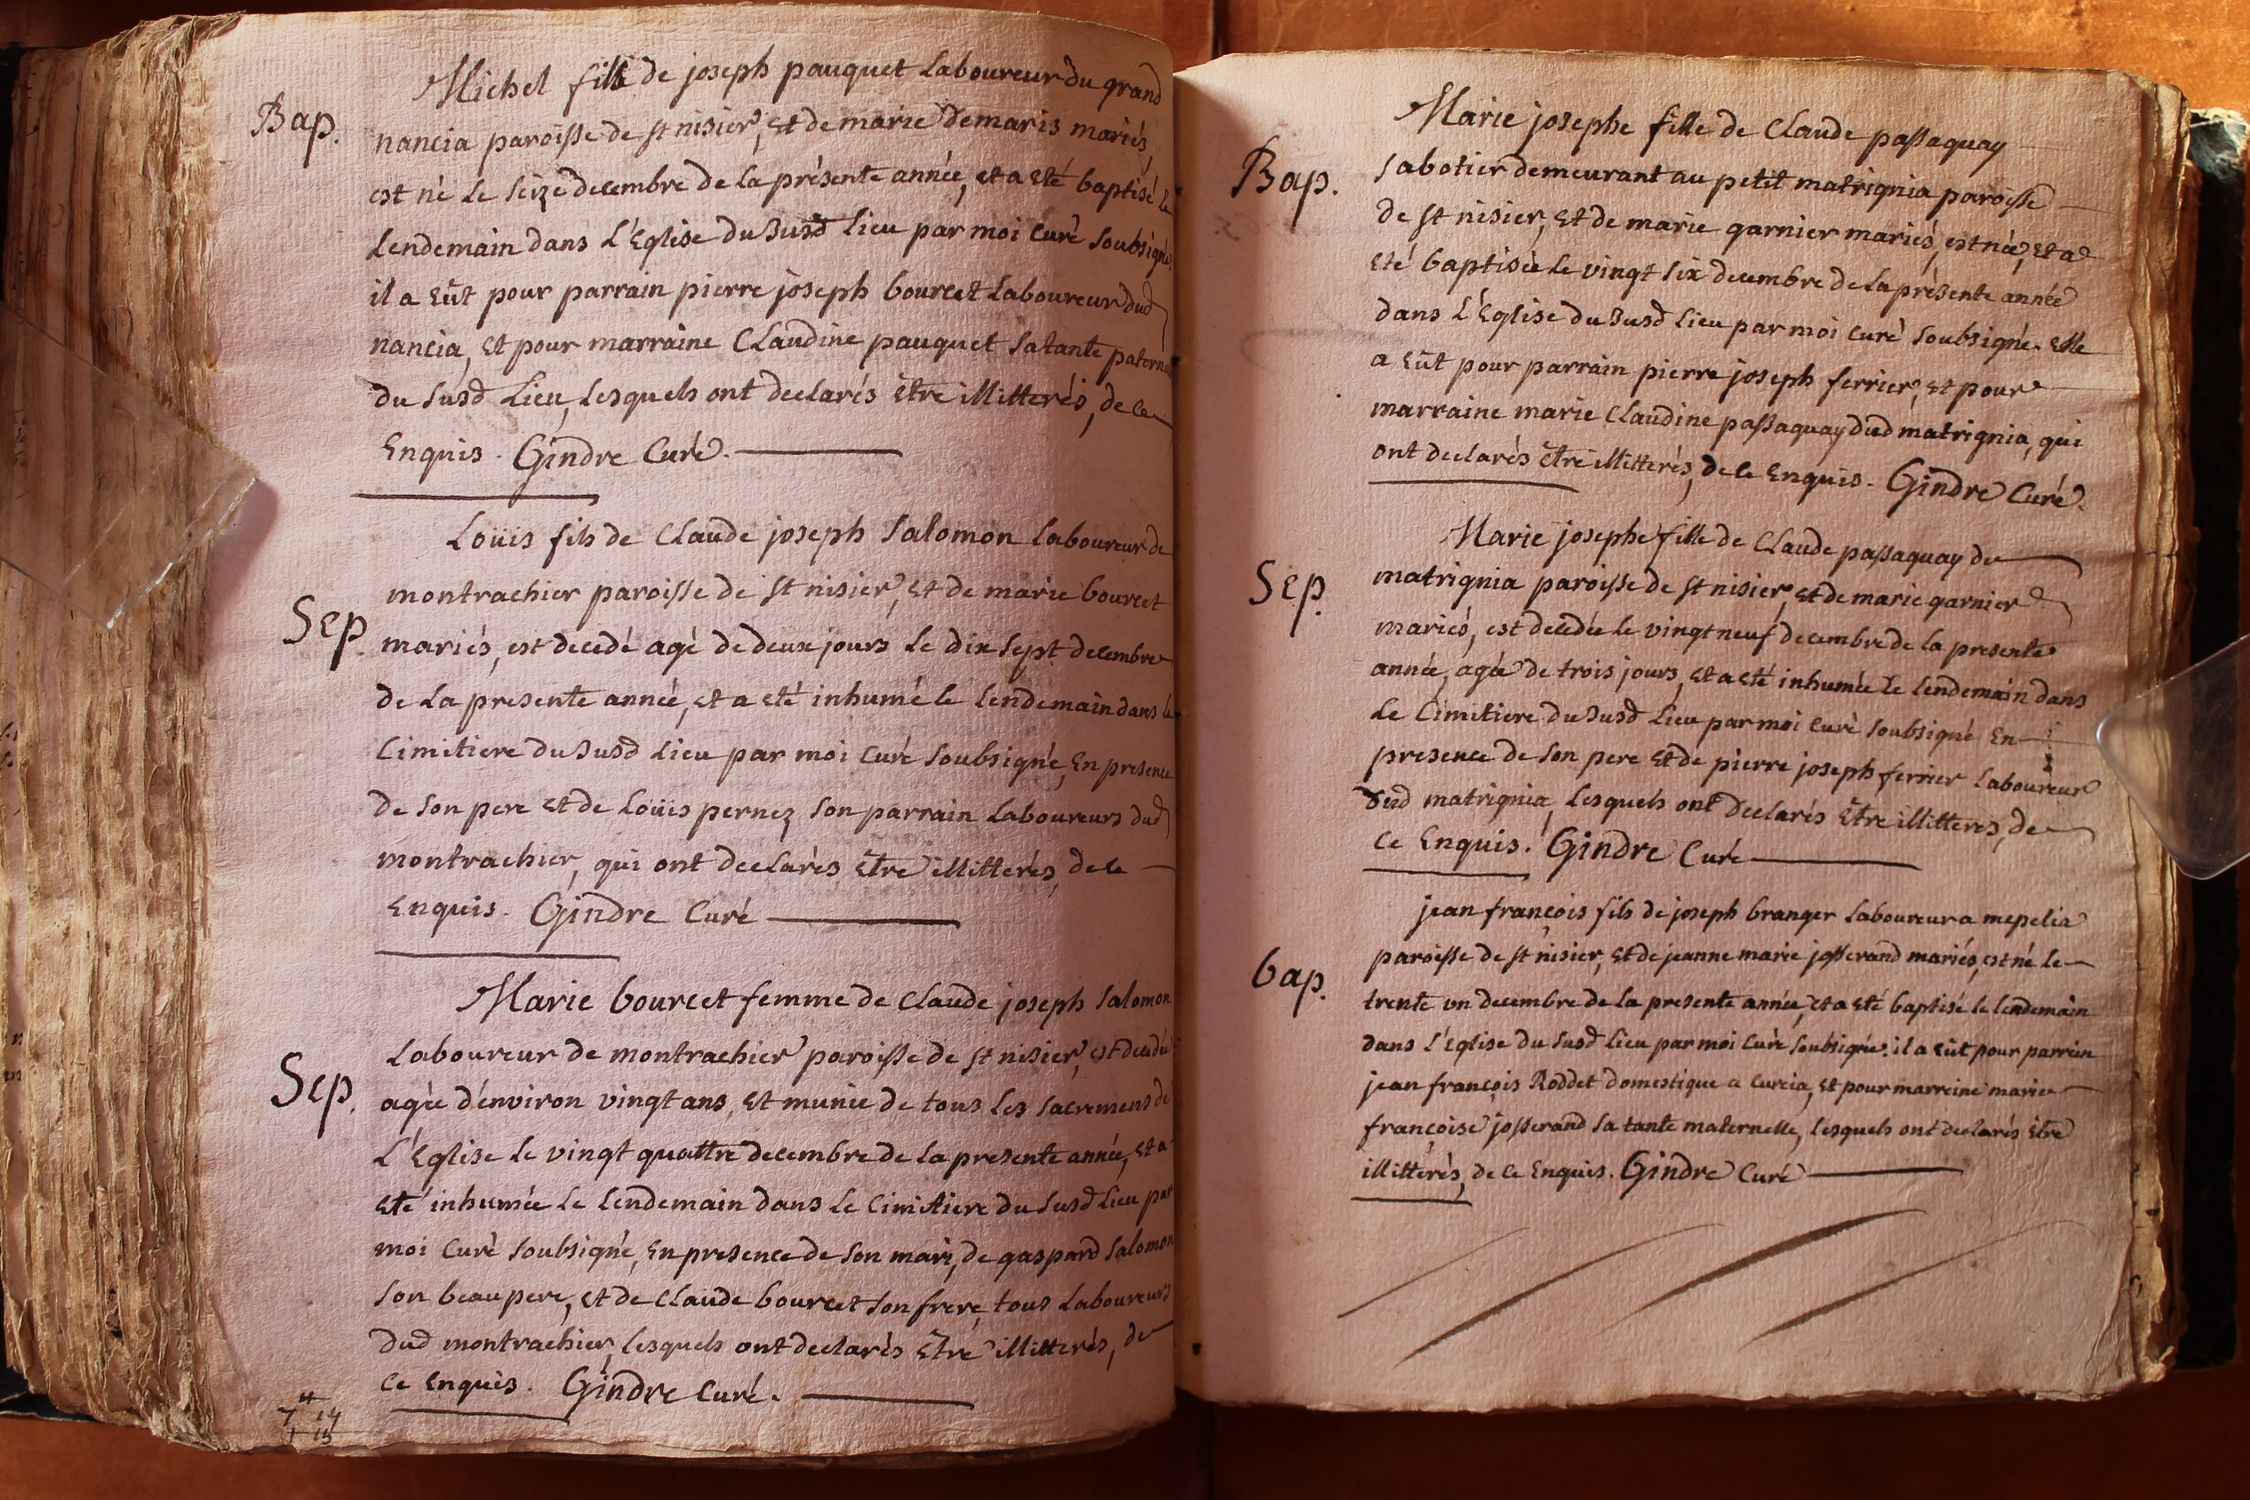 Bap.
Michel fils de joseph pauquet Laboureur du grand
nancia paroisse de st nisier, et de marie demaris mariés,
est né le seize decembre de la présente année, et a eté baptisé le
Lendemain dans L'Eglise du susd Lieu par moi curé soubsigné.
il a eüt pour parrain pierre joseph bourcet Laboureur dud
nancia, et pour marraine Claudine pauquet sa tante paterne
du susd Lieu, Lesquels ont declarés être illitterés, de ce
Enquis. Gindre Curé.
Sep.
Loüis fils de Claude joseph Salomon Laboureur de
montrachier paroisse de st nisier, et de marie bourcet
mariés, est decedé agé de deux jours le dix sept decembre
de la presente année, et a eté inhumé le lendemain dans le
Cimitiere du susd Lieu par moi curé soubsigné, En presence
de son pere et de Loüis pernez son parrain Laboureurs dud
montrachier, qui ont declarés être illitterés, de ce
Enquis. Gindre Curé
Sep.
Marie bourcet femme de Claude joseph Salomon
Laboureur de montrachier paroisse de st nisier, est decedée
agée d'environ vingt ans, et munie de tous les sacremens de
L'Eglise le vingt quattre decembre de la presente année, et a
eté inhumée le lendemain dans le Cimitiere du susd Lieu par
moi Curé soubsigné, En presence de son mari, de gaspard Salomon
son beaupere, et de Claude bourcet son frere, tous Laboureurs
dud montrachier, Lesquels ont declarés être illitterés, de
ce enquis. Gindre Curé.
Bap.
Marie josephe fille de Claude passaquay
sabotier demeurant au petit matrignia paroisse
de st nisier, et de marie garnier mariés, est née, et a
eté baptisée le vingt six decembre de la présente année
dans L'Eglise du susd Lieu par moi curé soubsigné. elle
a eüt pour parrain pierre joseph ferrier, et pour
marraine marie Claudine passaquay dud matrignia, qui
ont declarés être illitterés, de ce Enquis. Gindre Curé.
Sep.
Marie josephe fille de Claude passaquay de
matrignia paroisse de st nisier, et de marie garnier
mariés, est decedée le vingt neuf decembre de la presente
année, agée de trois jours, et a eté inhumée le lendemain dans
Le Cimitiere du susd Lieu par moi curé soubsigné En
presence de son pere et de pierre joseph ferrier Laboureur
dud matrignia, Lesquels ont declarés être illitterés, de
ce Enquis. Gindre Curé
bap.
jean françois fils de joseph branger Laboureur a mepelia
paroisse de st nisier, et de jeanne marie josserand mariés, est né le
trente un decembre de la presente année, et a eté baptisé le lendemain
dans L'Eglise du susd Lieu par moi Curé soubsigné. il a eüt pour parrain
jean françois Roddet domestique a curcia, et pour marreine marie
françoise josserand sa tante maternelle, lesquels ont declarés être
illitterés, de ce Enquis. Gindre Curé